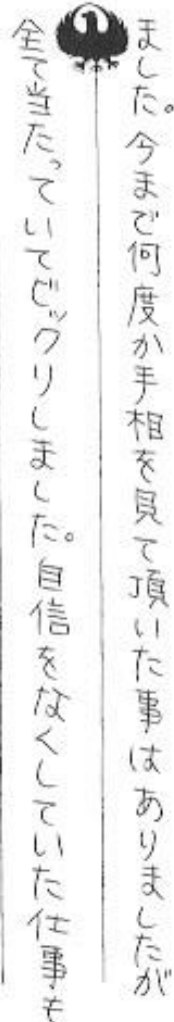 ました。今まで何度か手相を見て頂いた事はありましたが
全て当たっていてビックリしました。自信をなくしていた仕事も